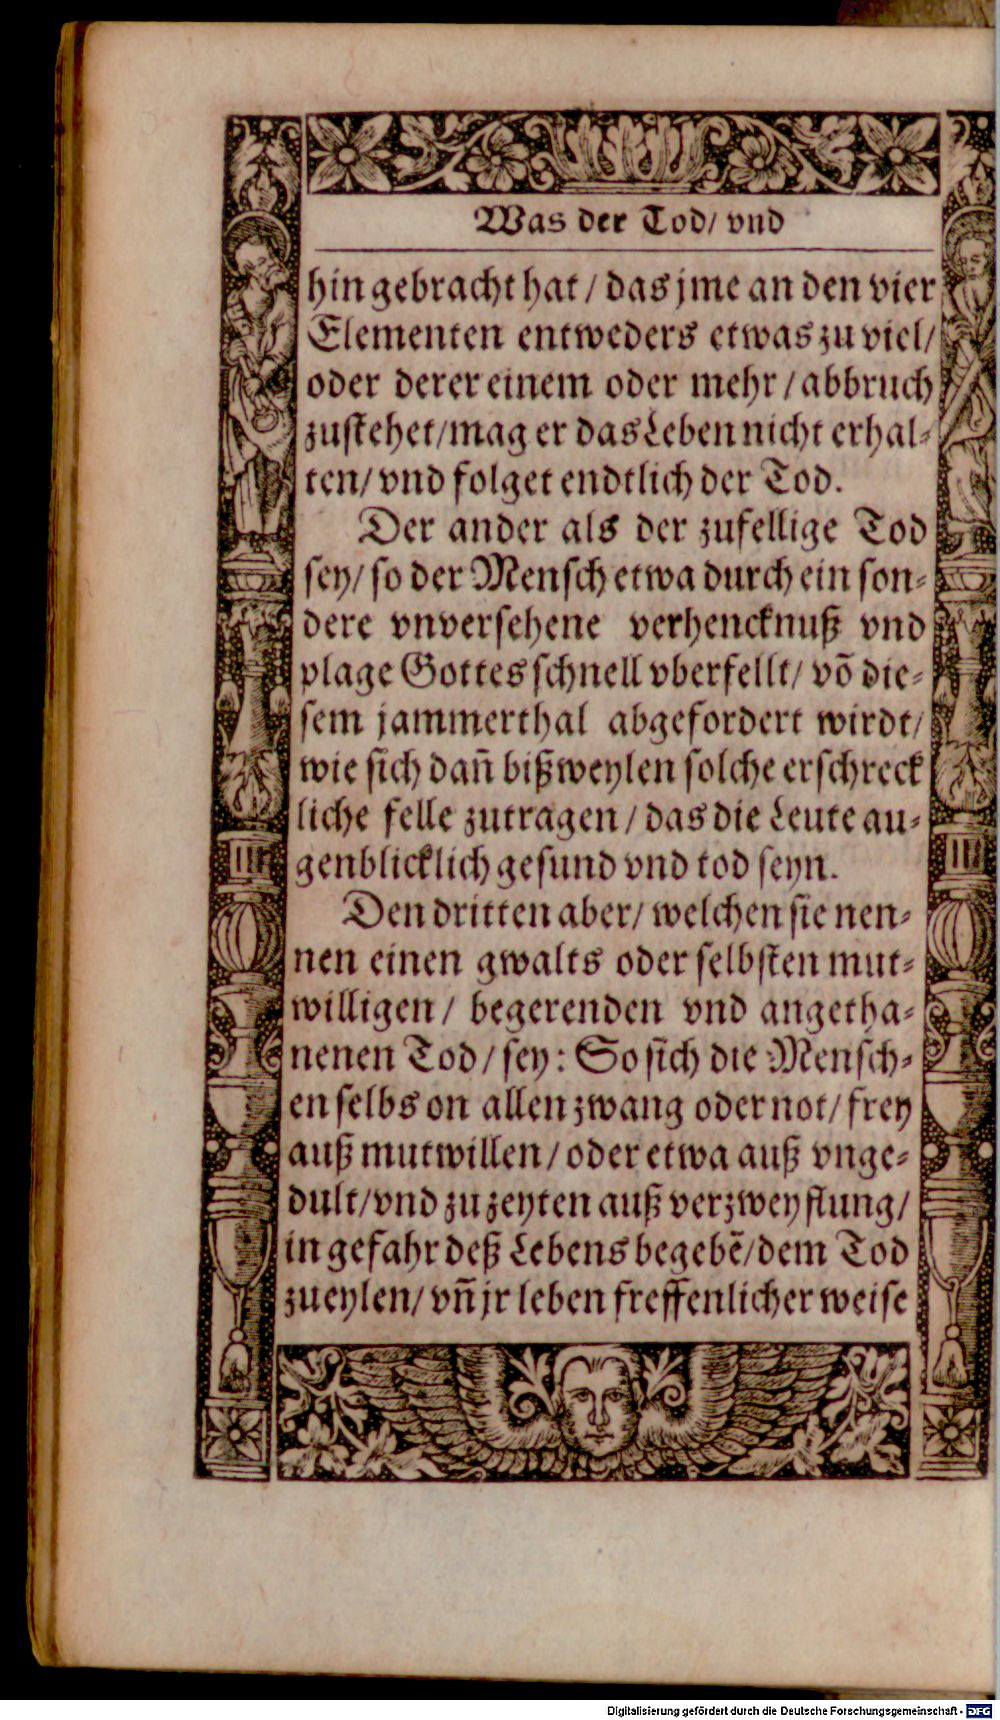 Was der Tod/ vnd
hin gebracht hat / das jme an den vier
Elementen entweders etwas zu viel/
oder derer einem oder mehr / abbruch
zustehet/mag er das Leben nicht erhal-
ten/ vnd folget endtlich der Tod.
Der ander als der zufellige Tod
sey/ so der Mensch etwa durch ein son-
dere vnversehene verhencknuß vnd
plage Gottes schnell vberfellt/ võ die-
sem jammerthal abgefordert wirdt/
wie sich dañ bißweylen solche erschreck
liche felle zutragen / das die Leute au-
genblicklich gesund vnd tod seyn.
Den dritten aber/ welchen sie nen-
nen einen gwalts oder selbsten mut-
willigen / begerenden vnd angetha-
nenen Tod / sey: So sich die Mensch-
en selbs on allen zwang oder not/ frey
auß mutwillen / oder etwa auß vnge-
dult/vnd zu zeyten auß verzweyflung/
in gefahr deß Lebens begebẽ/dem Tod
zueylen/ vñ jr leben freffenlicher weise
Digitalisierung gefördert durch die Deutsche Forschungsgemeinschaft - DFG